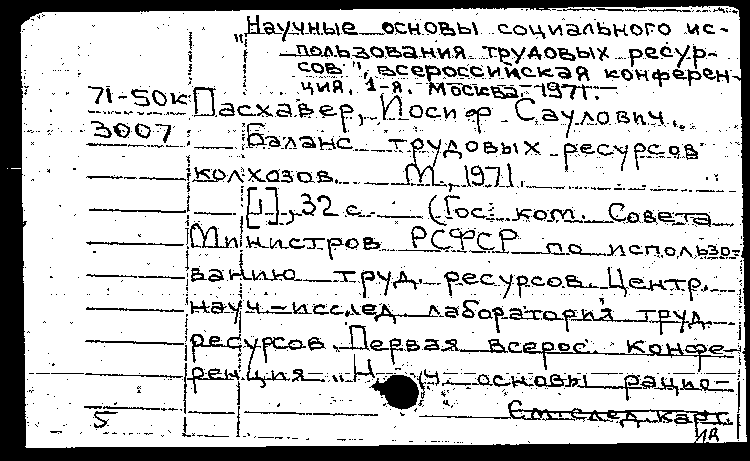 "Научные основы социального ис-
пользования трудовых ресур-
сов", всероссийская конферен-
ция, 1-я. Москва. 1971.
71-50к Пасхавер, Иосиф Саулович.
3007 Баланс трудовых ресурсов
колхозов. М., 1971.
[1], 32 с. (Гос. ком. Совета
Министров РСФСР по использо-
ванию труд. ресурсов. Центр.
науч.-исслед. лаборатория труд.
ресурсов. Первая Всерос. конфе-
ренция "Н ч. основы рацио-
5 См. след. карт.